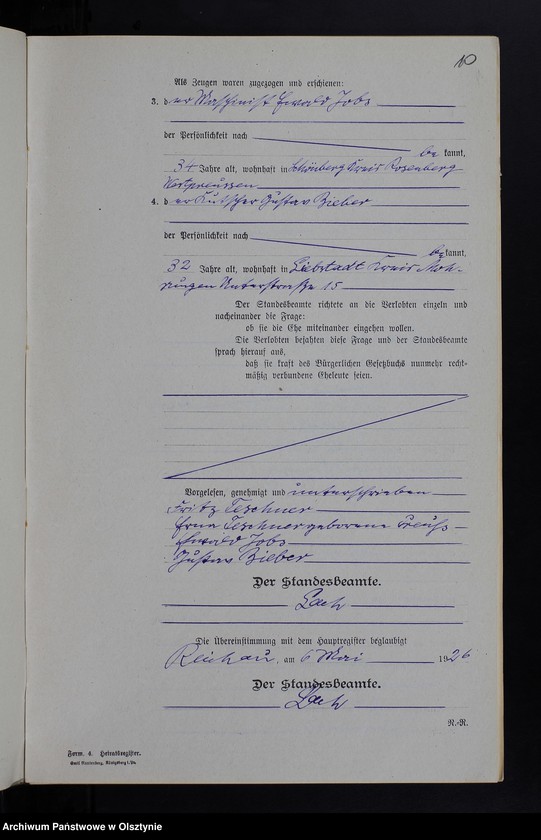 10
Als Zeugen waren zugezogen und erschienen:
3. der Maschinist Ewald Jobs
der Persönlichkeit nach
be kannt,
34 Jahre alt, wohnhaft in Schönberg Kreis Rosenberg
Westpreussen
4. der Kutscher Gustav Bieber
der Persönlichkeit nach
be kannt,
32 Jahre alt, wohnhaft in Liebstadt Kreis Moh-
rungen Unterstraße 15
Der Standesbeamte richtete an die Verlobten einzeln und
nacheinander die Frage:
ob sie die Ehe miteinander eingehen wollen.
Die Verlobten bejahten diese Frage und der Standesbeamte
sprach hierauf aus,
daß sie kraft des Bürgerlichen Gesetzbuchs nunmehr recht-
mäßig verbundene Eheleute seien.
Vorgelesen, genehmigt und unterschrieben
Fritz Teschner
Erna Teschner geborene Preuß
Ewald Jobs
Gustav Bieber
Der Standesbeamte.
Lach
Die Übereinstimmung mit dem Hauptregister beglaubigt
Reichau, am 6 Mai 1926
Der Standesbeamte.
Lach
R.-R.
Form. 4. Heiratsregister.
Königsberg i. Pr.
Archiwum Państwowe w Olsztynie